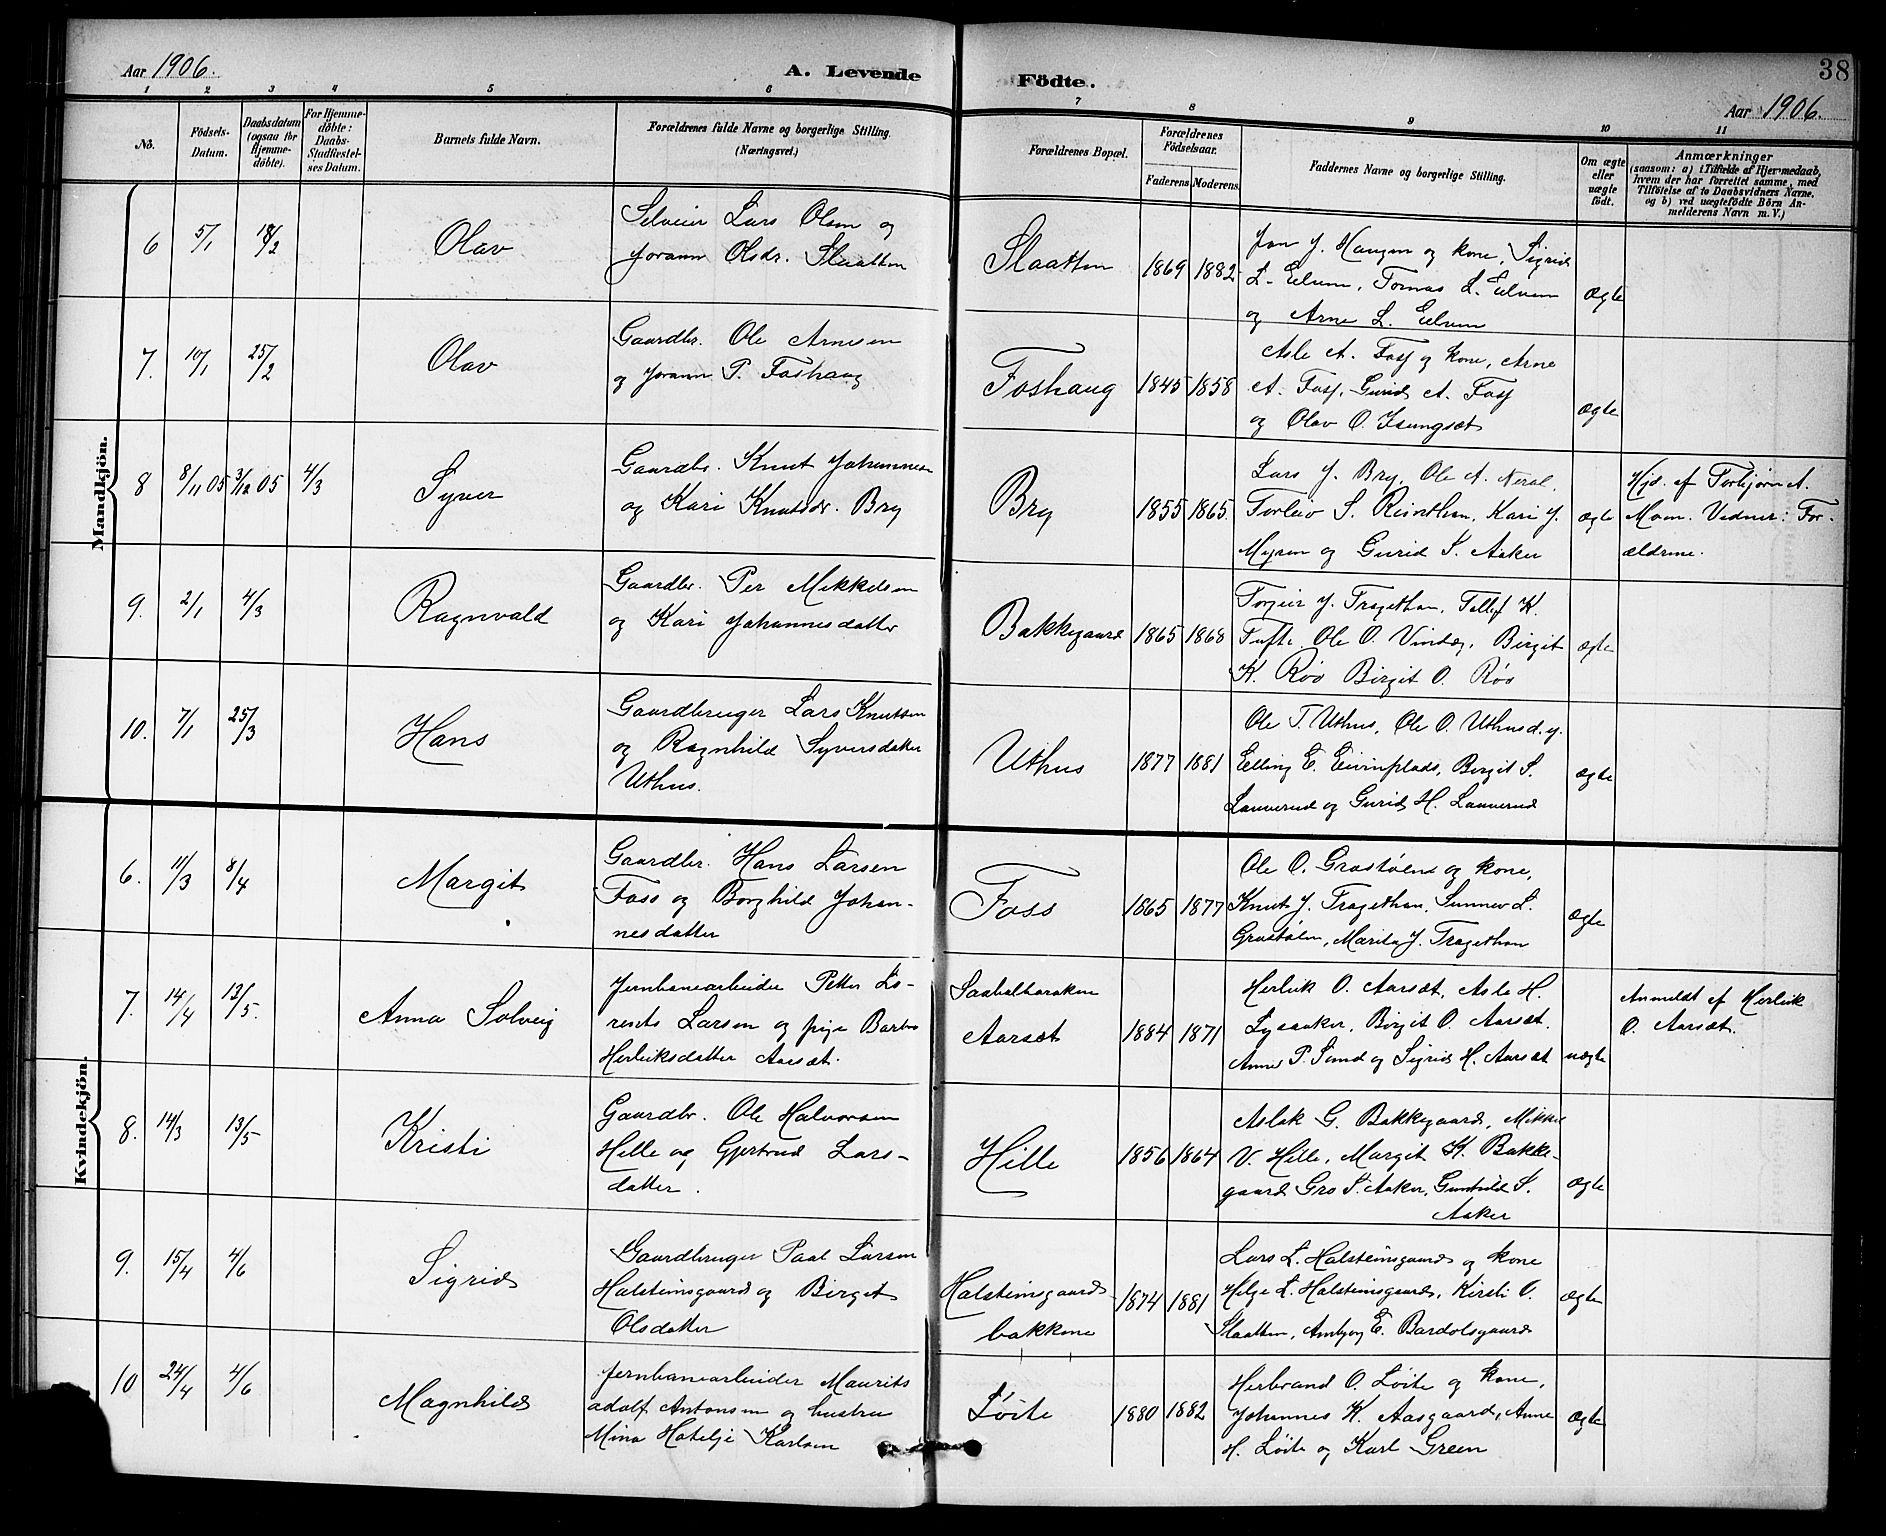 Aar 1906.
A. Levende
Födte.
38
Aar 1906.
1 2 3 4 5 6 7 8 9 10 11
No.
Födsels-
Datum.
Daabsdatum
(ogsaa for
Hjemme-
døbte).
For Hjemme-
døbte:
Daabs-
Stadfæstel-
ses Datum.
Barnets fulde Navn.
Forældrenes fulde Navne og borgerlige Stilling.
(Næringsvei.)
Forældrenes Bopæl.
Forældrenes
Födselsaar.
Faderens Moderens.
Faddernes Navne og borgerlige Stilling.
Om ægte
eller
uægte
födt.
Anmærkninger
(saasom: a) i Tilfælde af Hjemmedaab,
hvem der har forrettet samme, med
Tilföielse af to Daabsvidners Navne.
og b) ved uægtefödte Börn An-
melderens Navn m. V.)
Mandkjön.
6 5/1 18/2 Olav
Selveier Lars Olsen og
Jorann Olsdr. Slaatten
Slaatten 1869 1882
Jon J. Haugen og kone, Sigrid
L. Eelvem, Tomas L. Eelvem
og Arne L. Eelvem
Ægte
7. 10/1 25/2 Olav
Gaardbr. Ole Arnesen
og Jorann P. Foshaug
Foshaug 1845 1858
Asle A. Foss og kone, Arne
A. Foss, Gurid A. Foss
og Olav O. Isungset
Ægte
8 8/11 05 3/12 05 4/3 Syver
Gaardbr. Knut Johannesen
og Kari Knutsdr. Bry
Bry 1855 1865.
Lars J. Bry, Ole A. Neral,
Torleiv S. Reinthon, Kari J.
Myren og Gurid S. Aaker
Ægte
Hjd. af Torbjørn A.
Moen. Vidner: For-
ældrene.
9. 2/1 4/3 Ragnvald
Gaardbr. Per Mikkelsen
og Kari Johannesdatter
Bakkegaard 1865 1868
Torgeir J. Tragethon, Tellef K.
Tufte, Ole O. Vindeg, Birgit
K. Røo Birgit O. Røo
ægte
10. 7/1 25/3 Hans
Gaardbruger Lars Knutsen
og Ragnhild Syversdatter
Uthus.
Uthus 1877 1881
Ole T. Uthus, Ole O. Uthus d. y.
Elling E. Eivinsplads, Birgit S.
Lauverud og Gurid H. Lauverud
Ægte
Kvindekjön.
6. 11/3 8/4 Margit
Gaardbr. Hans Larsen
Foss og Borghild Johan-
nesdatter
Foss 1865 1877
Ole O. Grostølen og kone,
Knut J. Tragethon, Sunnev L.
Grostølen, Marita J. Tragethon
Ægte
7. 14/4 13/5. Anna Solveig
Jernbanearbeider Petter Lo-
rents Larsen og pige Barbro
Herleiksdatter Aarset.
Aarset 1884 1871
Herleik O. Aarset, Asle H.
Lysaaker, Birgit O. Aarset,
Anne P. Sand og Sigrid H. Aarset
uægte
Anmeldt af Herleik
O. Aarset.
8. 14/3 13/5 Kristi
Gaardbr. Ole Halvorsen
Hille og Gjertrud Lars-
datter.
Hille 1856 1864
Aslak G. Bakkegaard, Mikkel
V. Hille, Margit K. Bakke-
gaard Gro S. Aaker, Gunhild S.
Aaker
Ægte
9. 15/4 4/6 Sigrid
Gaardbruger Paal Larsen
Halsteinsgaard og Birgit
Olsdatter
Halsteinsgaards
bakkene
1874 1881
Lars L. Halsteinsgaard og kone
Helge L. Halsteinsgaard, Kirsti O.
Slaatten, Ambjørg E. Bardolsgaard
Ægte
10 24/4 4/6 Magnhild
Jernbanearbeider Maurits
Adolf Antonsen og hustru
Mina Karlsen
Løite 1880 1882
Herbrand O. Løite og kone,
Johannes K. Aasgaard, Anne
H. Løite og Karl Green
Ægte